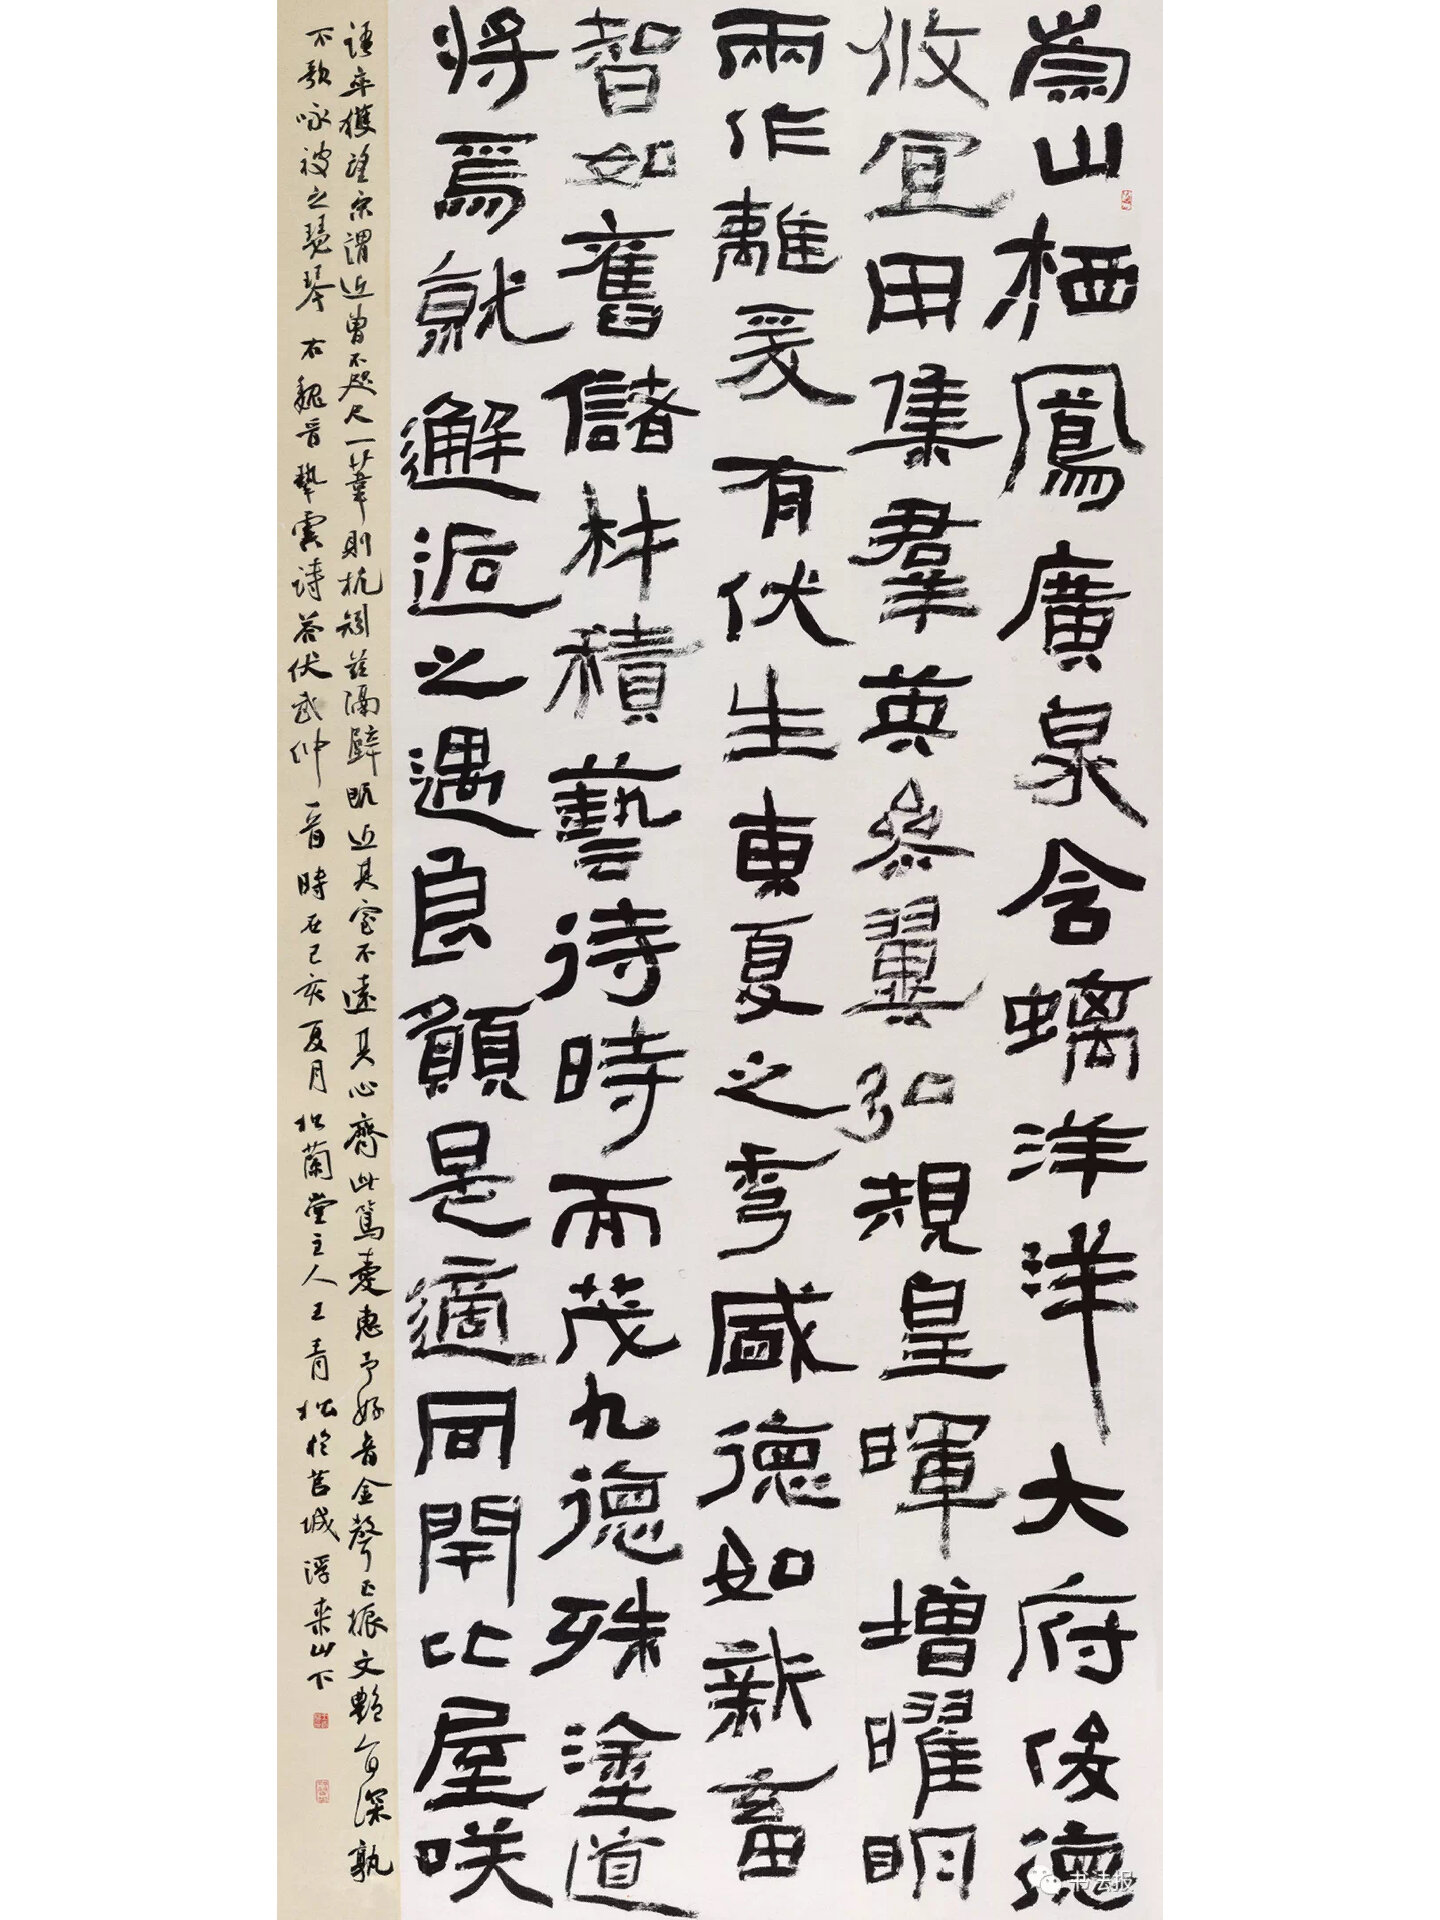 崇山栖鳳廣泉含螭洋洋大府俊德
攸宜用集羣英參翼弘規皇暉增曜明
兩作離爰有伏生東夏之秀盛德如新畜
智如舊儲材積藝待時而茂九德殊塗道
將焉就邂逅之遇良願是適同閈比屋咲
語卒獲望宋謂近曾不咫尺一葦則杭矧兹隔壁既近其室不遠其心齊此篤愛惠予好音金聲玉振文豔旨深孰
不歌咏被之瑟琴 右魏晉摯虞詩答伏武仲一首 時在己亥夏月 松蘭堂主人王青松於莒城浮来山下
书法报